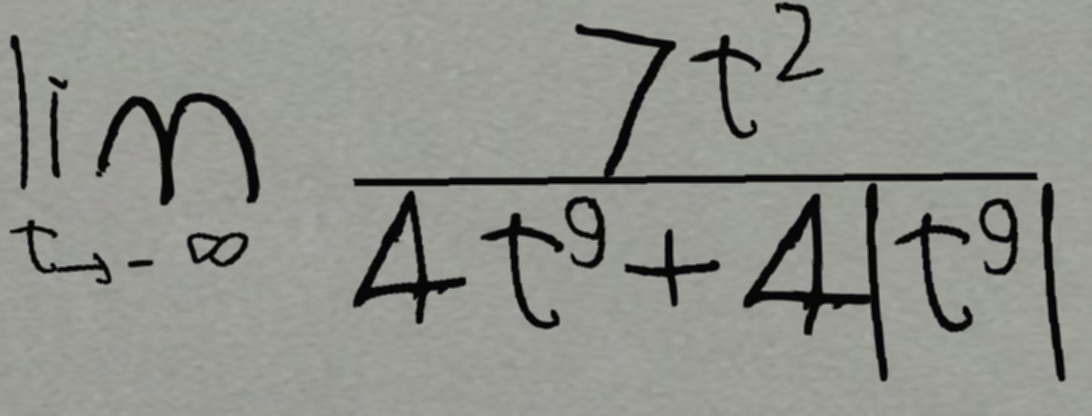 \lim_{t \to -\infty} \frac{7t^2}{4t^9 + 4|t^9|}